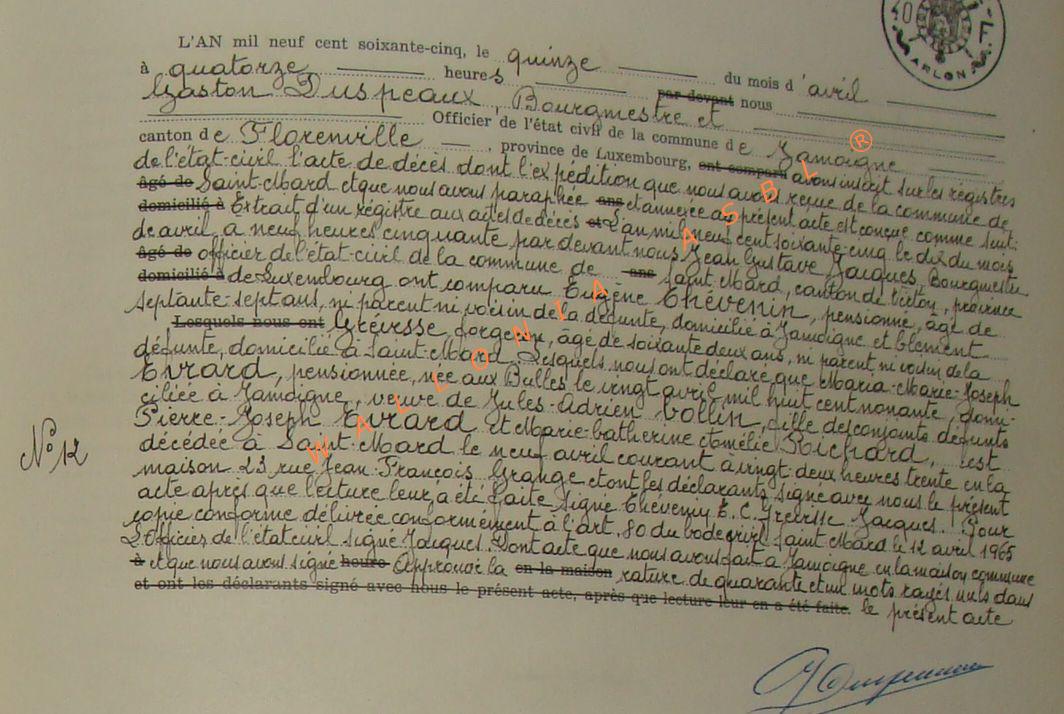 L'AN mil neuf cent soixante-cinq, le quinze du mois d'avril
à quatorze heures par devant nous
Gaston Duspeaux, Bourgmestre et
Officier de l'état civil de la commune de Jamoigne
canton de Florenville, province de Luxembourg, ont comparu avons inscrit sur les registres
de l'état-civil l'acte de décès dont l'expédition que nous avons reçue de la commune de
âgé de Saint-Mard et que nous avons paraphée ans et annexée au présent acte est conçue comme suit:
domicilié à Extrait d'un régistre aux actes de décès et L'an mil neuf cent soixante-cinq le dix du mois
de avril, à neuf heures cinquante par devant nous Jean Gustave Jacques, Bourgmestre
âgé de officier de l'état-civil de la commune de ans Saint-Mard, canton de Virton, province
domicilié à de Luxembourg ont comparu Eugène Thévenin, pensionné, âgé de
septante sept ans, ni parent ni voisin de la défunte, domicilié à Jamoigne et Clément
Lesquels nous ont Grévisse, forgeron, âgé de soixante deux ans, ni parent ni voisin de la
défunte, domicilié à Saint-Mard. Lesquels nous ont déclaré que Maria-Marie-Joseph
Evrard, pensionnée, née aux Bulles le vingt avril mil huit cent nonante, domi-
ciliée à Jamoigne, veuve de Jules-Adrien Collin, fille des conjoints défunts
Pierre-Joseph Evrard et Marie-Catherine Amélie Richard, est
décédée à Saint-Mard le neuf avril courant à vingt-deux heures trente en la
N° 12
maison 23 rue Jean-François Grange et ont les déclarants signé avec nous le présent
acte après que lecture leur a été faite Signé Thévenin E. C. Grévisse Jacques. Pour
copie conforme délivrée conformément à l'art. 80 du code civil Saint Mard le 12 avril 1965
L'Officier de l'état civil signé Jacques. Dont acte que nous avons fait à Jamoigne en la maison commune
à et que nous avons signé heure Approuvé la en la maison rature de quarante et un mots rayés nuls dans
et ont les déclarants signé avec nous le présent acte, après que lecture leur en a été faite. le présent acte
ARLON
WALLONIA ASBL ®